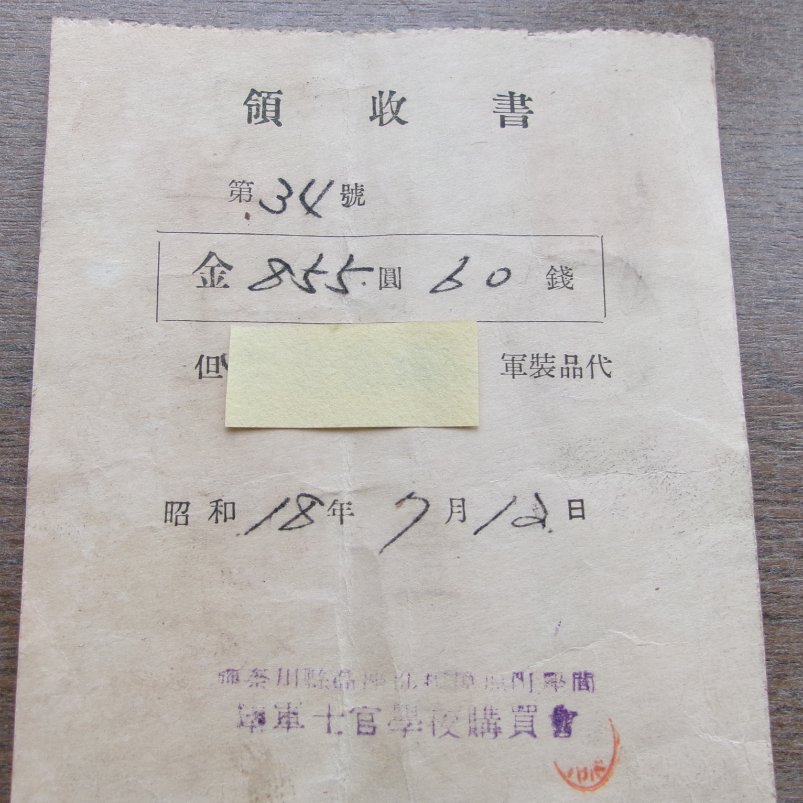 領收書
第34號
金855圓60錢
但 軍裝品代
昭和18年7月12日
神奈川縣高座郡座間町座間
陸軍士官學校購買會